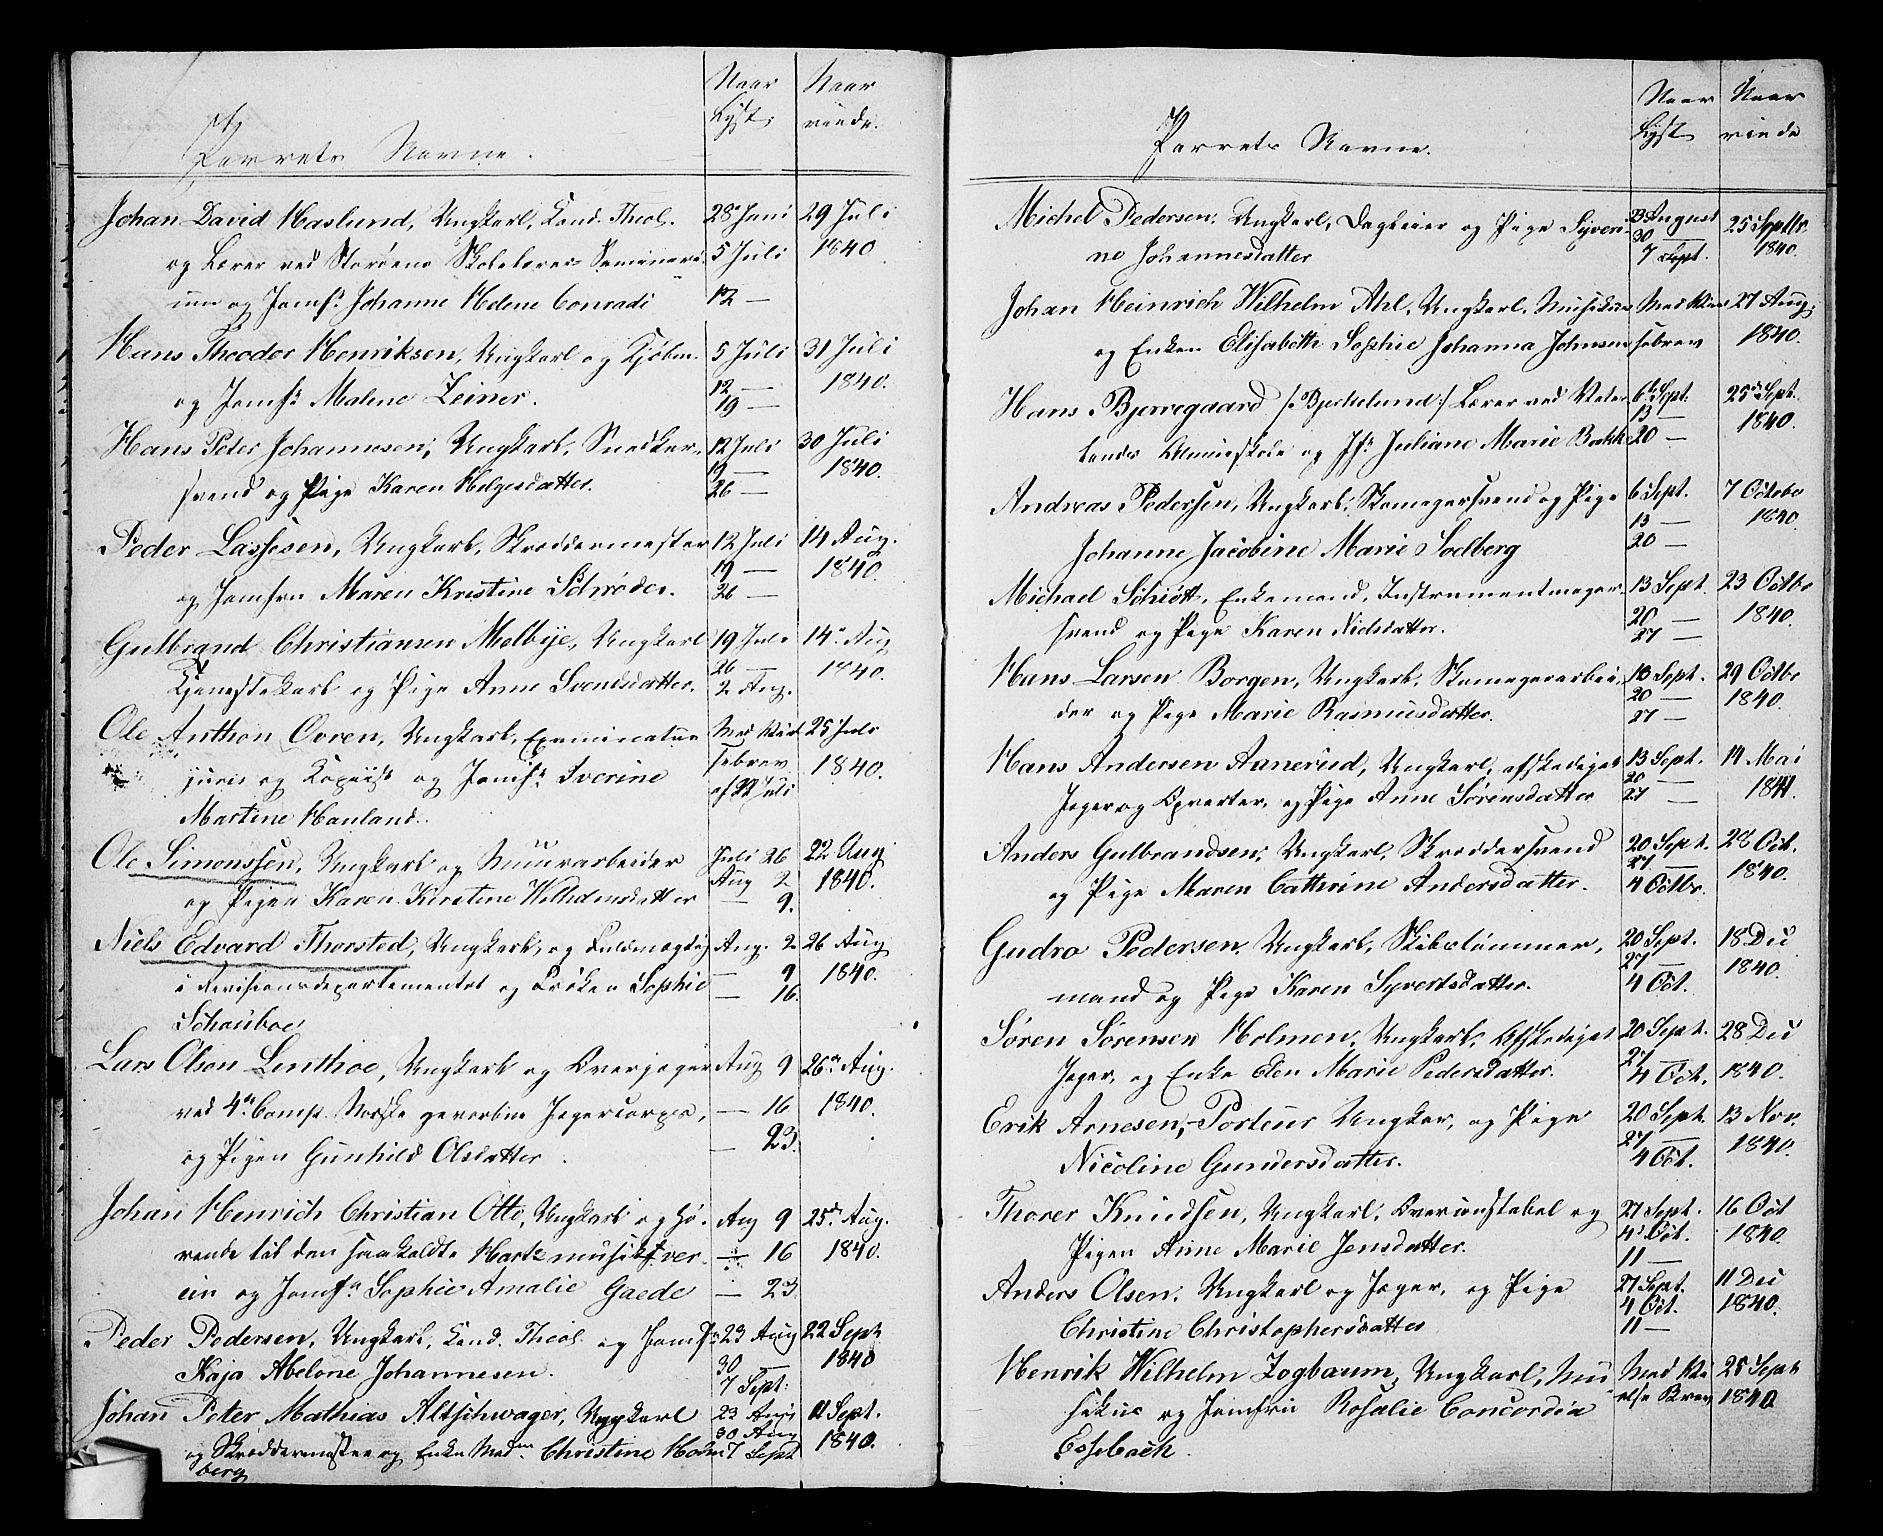 Parrets Navne. Naar Lyst. Naar viede.
Johan David Haslund, Ungkarl, Cand. Theol. 28 Juni 29 Juli
og Lærer ved Storøens Skolelærer Seminari- 5 Juli 1840
um og Jomfr Johanne Helene Conradi 12 —
Hans Theodor Henriksen, Ungkarl og Kjøbm. 5 Juli 31 Juli
og Jomfr Malene Zeiner. 12 — 1840.
19 —
Hans Peter Johannesen, Ungkarl, Snedker- 12 Juli 30 Juli
svend og Pige Karen Helgesdatter. 19 — 1840.
26 —
Peder Lassesen, Ungkarl, Skræddermester 12 Juli 14 Aug.
og Jomfru Maren Kristine Schrøder. 19 — 1840.
26 —
Gulbrand Christiansen Melbye, Ungkarl 19 Juli 14 Aug
Tjenestekarl og Pige Anne Svendsdatter. 26 — 1840.
2 Aug.
Ole Anthon Ovren, Ungkarl, Examinatus Med Viel 25 Juli
juris og Kopiist og Jomfr Iverine sebrev 1840.
Martine Hauland. af 22 Juli
Ole Simonssen, Ungkarl og Muurarbeider Juli 26 22 Aug
og Pigen Karen Kirstine Wilhelmsdatter Aug 2 1840.
— 9.
Niels Edvard Thorsted, Ungkarl, og Fuldmægtig Aug. 2 26 Aug
i Revisionsdepartementet og Frøken Sophie — 9 1840.
Schouboe — 16.
Lars Olsen Linthoe, Ungkarl og Overjæger Aug 9 26 Aug.
ved 4 Comp. Norske gevorbne Jægercorps, — 16 1840.
og Pigen Gunhild Olsdatter. — 23.
Johan Henrich Christian Otto, Ungkarl og hø- Aug 9 25 Aug.
rende til den saakaldte Hartz musikver — 16 1840.
ein og Jomfr Sophie Amalie Gaede — 23
Peder Pedersen, Ungkarl, Cand. Theol. og Jomfr 23 Aug 22 Sept
Kaja Abelone Johannesen. 30 — 1840
7 Sept.
Johan Peter Mathias Altschwager, Ungkarl 23 Aug 11 Sept.
og Skræddermester og Enke Mad. Christine Holm 30 Aug 1840.
berg 7 Sept
Parrets Navne. Naar Lyst Naar viede
Michel Pedersen, Ungkarl, Dagleier og Pige Syveri- 23 August 25 Septbr
ne Johannesdatter 30 — 1840.
7 Sept.
Johan Heinrich Wilhelm Ahl, Ungkarl, Musikus Med Viel 27 Aug.
og Enken Elisabeth Sophie Johanna Johnsen sebrev 1840.
Hans Bjerregaard /: Bjerkelund :/ Lærer ved Vater 6 Sept. 25 Sept.
lands Almueskole og Jfr Juliane Marie Bakke 13 — 1840.
20 —
Andreas Pedersen, Ungkarl, Skomagersvend og Pige 6 Sept. 7 Octobr
Johanne Jacobine Marie Soelberg 13 — 1840.
20 —
Michael Schiøtt, Enkemand, Instrumentmager 13 Sept. 23 Octbr
svend og Pige Karen Nielsdatter. 20 — 1840.
27 —
Hans Larsen Borgen, Ungkarl, Skomagerarbei- 13 Sept. 29 Octbr
der og Pige Marie Rasmusdatter. 20 — 1840.
27 —
Hans Andersen Aanerud, Ungkarl, afskediget 13 Sept. 14 Mai
Jæger og Opvarter, og Pige Anne Sørensdatter 20 — 1841.
27 —
Anders Gulbrandsen, Ungkarl, Skræddersvend 20 Sept. 28 Oct.
og Pige Maren Cathrine Andersdatter. 27 1840.
4 Octbr.
Gudro Pedersen, Ungkarl, Skibstømmer- 20 Sept. 18 Dec
mand og Pige Karen Syvertsdatter. 27 — 1840.
4 Oct.
Søren Sørensen Holmen, Ungkarl, Afskediget 20 Sept. 28 Dec
Jæger, og Enke Elen Marie Pedersdatter. 27 1840.
4 Oct.
Erik Arnesen, Porteur Ungkar, og Pige 20 Sept. 13 Nov.
Nicoline Gundersdatter. 27 — 1840.
4 Oct.
Thorer Knudsen, Ungkarl, Overconstabel og 27 Sept. 16 Oct
Pigen Anne Marie Jensdatter. 4 Oct. 1840.
11 —
Anders Olsen, Ungkarl og Jæger, og Pige 27 Sept. 11 Dec
Christine Christophersdatter 4 Oct. 1840.
11 —
Henrik Wilhelm Zogbaum, Ungkarl, Mu Med Vi 25 Sept
sikus og Jomfru Rosalie Concordia else Brev 1840
Esselbach.